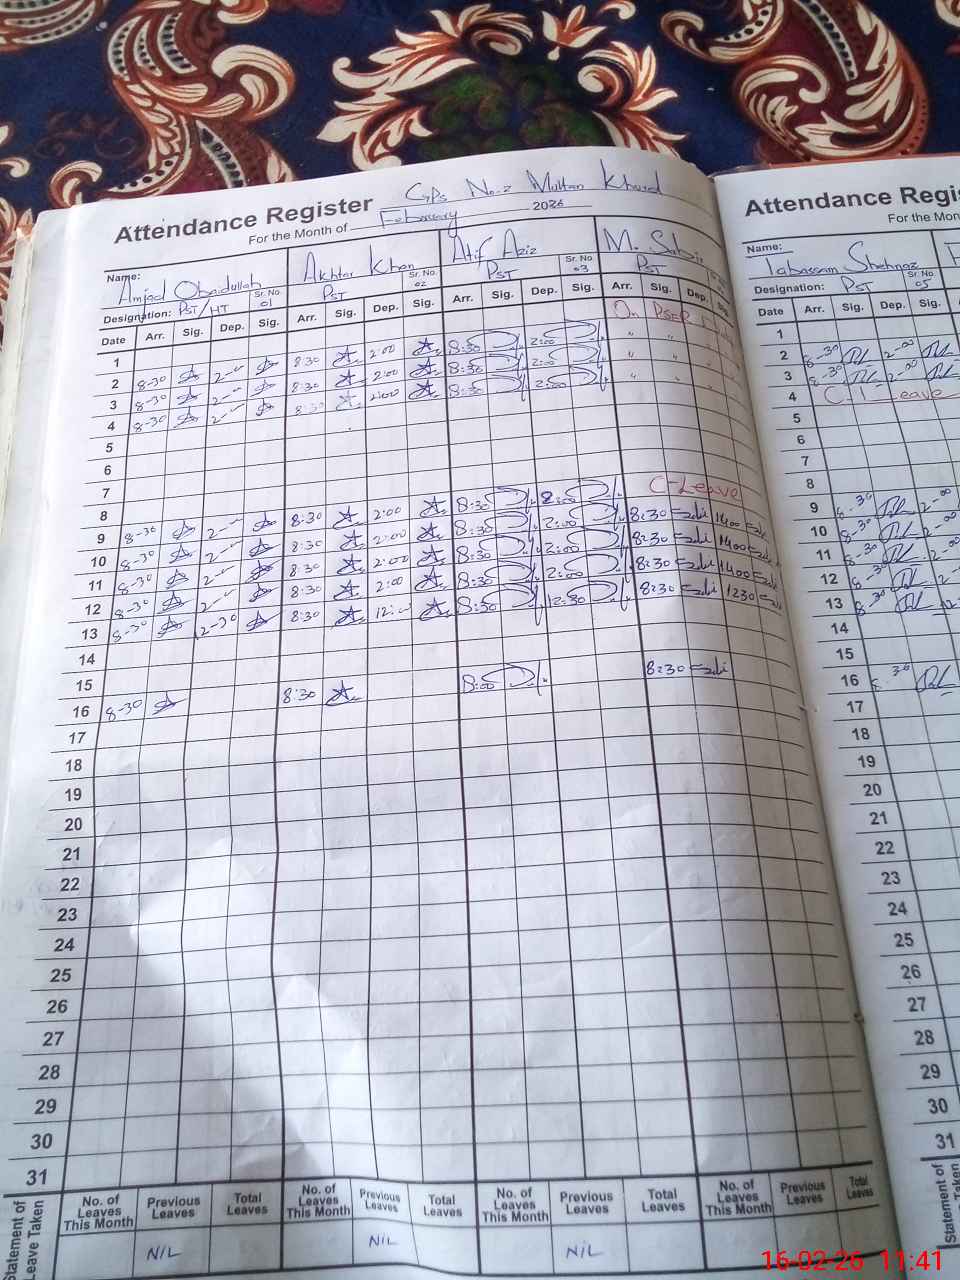 GPS No.2 Multan Khurd
Attendance Register
For the Month of February 2026
Name: Amjad Obaidullah Akhtar Khan Atif Aziz M.
Designation: PST/HT Sr. No. 01 PST Sr. No. 02 PST Sr. No. 03 PST Sr. No.
Date Arr. Sig. Dep. Sig. Arr. Sig. Dep. Sig. Arr. Sig. Dep. Sig. Arr. Sig. Dep. Sig.
On PSER
1
2 8-30 8:30 2:00 8:30 2:00 " " "
3 8-30 8:30 2:00 8:30 2:00 " " "
4 8-30 8:30 2:00 8:30 2:00 " " "
5
6
7
8 C-Leave
9 8-30 8:30 2:00 8:30 2:00 8:30 1400
10 8-30 8:30 2:00 8:30 2:00 8:30 1400
11 8-30 8:30 2:00 8:30 2:00 8:30 1400
12 8-30 8:30 2:00 8:30 2:00 8:30 1230
13 8-30 12-30 8:30 8:30 12:30
14
15
16 8-30 8:30 8:00 8:30
17
18
19
20
21
22
23
24
25
26
27
28
29
30
31
Statement of Leave Taken
No. of Leaves This Month Previous Leaves Total Leaves No. of Leaves This Month Previous Leaves Total Leaves No. of Leaves This Month Previous Leaves Total Leaves No. of Leaves This Month Previous Leaves Total Leaves
NIL NIL NIL
Attendance Regis
For the Mon
Name: Tabassam Shehnaz
Designation: PST Sr. No. 05
Date Arr. Sig. Dep. Sig.
1
2 8-30 2-00
3 8-30 2-00
4 C-Leave
5
6
7
8
9 8-30 2-00
10 8-30 2-00
11 8-30 2-00
12 8-30 2-00
13 8-30
14
15
16 8-30
17
18
19
20
21
22
23
24
25
26
27
28
29
30
31
Statement of
Leave Taken
16-02-26 11:41